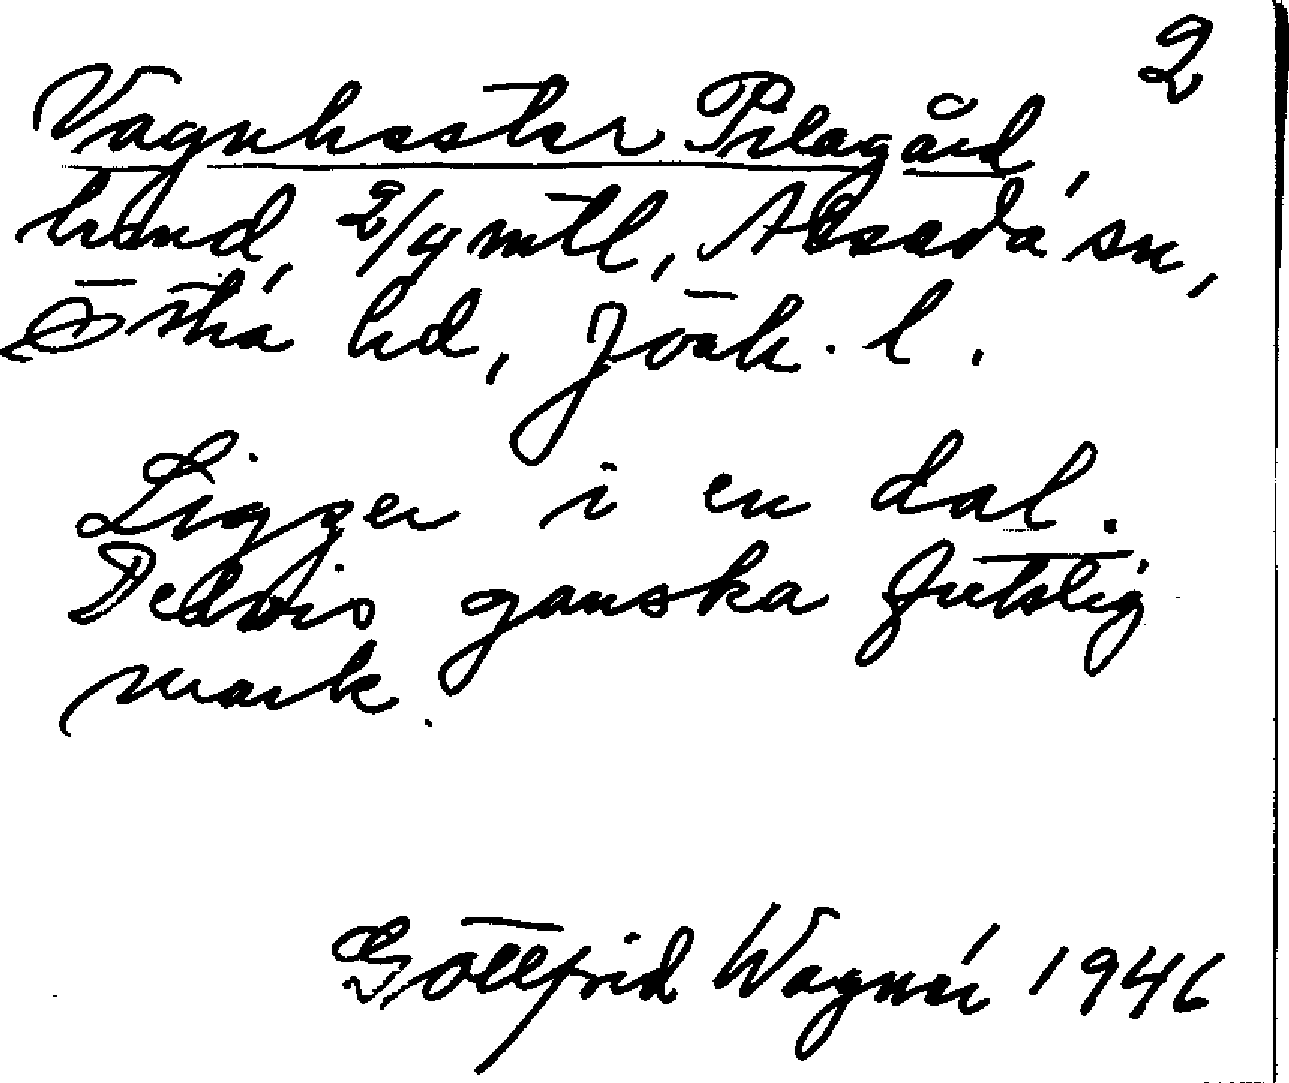 2
Vagnhester Pilagård,
hmd, 2/9 mtl, Alseda sn,
Östra hd, Jönk. l.
Ligger i en dal.
Delvis ganska fuktig
mark.
Gottfrid Wagnér 1946